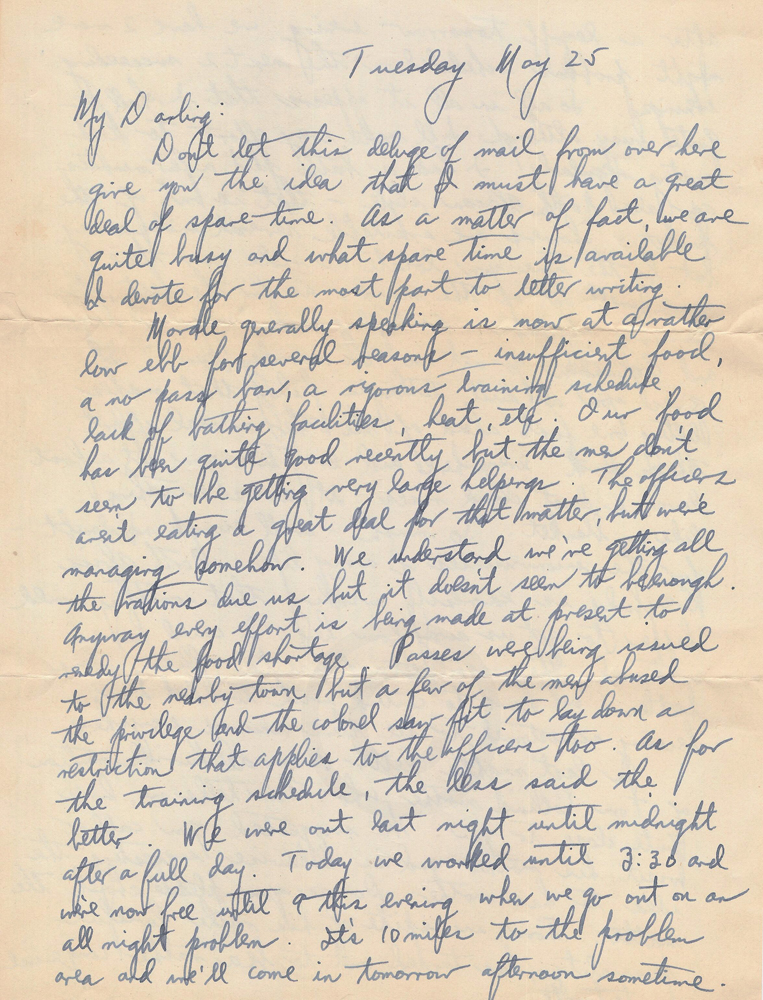 Tuesday May 25
My Darling:
Don't let this deluge of mail from over here
give you the idea that I must have a great
deal of spare time. As a matter of fact, we are
quite busy and what spare time is available
I devote for the most part to letter writing.
Morale generally speaking is now at a rather
low ebb for several reasons – insufficient food,
a no pass ban, a rigorous training schedule
lack of bathing facilities, heat, etc. Our food
has been quite good recently but the men don't
seem to be getting very large helpings. The officers
aren't eating a great deal for that matter, but we're
managing somehow. We understand we're getting all
the rations due us but it doesn't seem to be enough.
Anyway every effort is being made at present to
remedy the food shortage. Passes were being issued
to the nearby town but a few of the men abused
the privilege and the colonel saw fit to lay down a
restriction that applies to the officers too. As for
the training schedule, the less said the
better. We were out last night until midnight
after a full day. Today we worked until 3:30 and
we're now free until 9 this evening when we go out on an
all night problem. It's 10 miles to the problem
area and we'll come in tomorrow afternoon sometime.